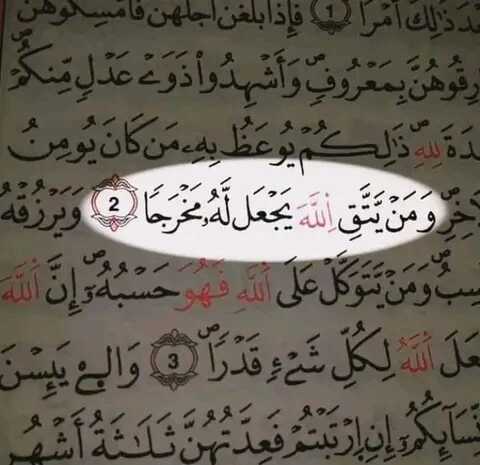 عْدَ ذَٰلِكَ أَمْرًا 1 فَإِذَا بَلَغْنَ أَجَلَهُنَّ فَأَمْسِكُوهُنَّ
ارِقُوهُنَّ بِمَعْرُوفٖ وَأَشْهِدُواْ ذَوَےْ عَدْلٖ مِّنكُمْ
دَةَ لِلهِ ذَٰلِكُمْ يُوعَظُ بِهِۦ مَن كَانَ يُومِنُ
اخِرِ وَمَنْ يَّتَّقِ اِللَّهَ يَجْعَل لَّهُۥ مَخْرَجًا 2 وَيَرْزُقْهُ
سِبُ وَمَنْ يَّتَوَكَّلْ عَلَى اَللَّهِ فَهُوَ حَسْبُهُۥٓ إِنَّ اَللَّهَ
عَلَ اَللَّهُ لِكُلِّ شَےْءٖ قَدْرًا 3 وَالے يَئِسْنَ
نِّسَآئِكُمُۥٓ إِنِ اِرْتَبْتُمْ فَعِدَّتُهُنَّ ثَلَٰثَةُ أَشْهُرٖ